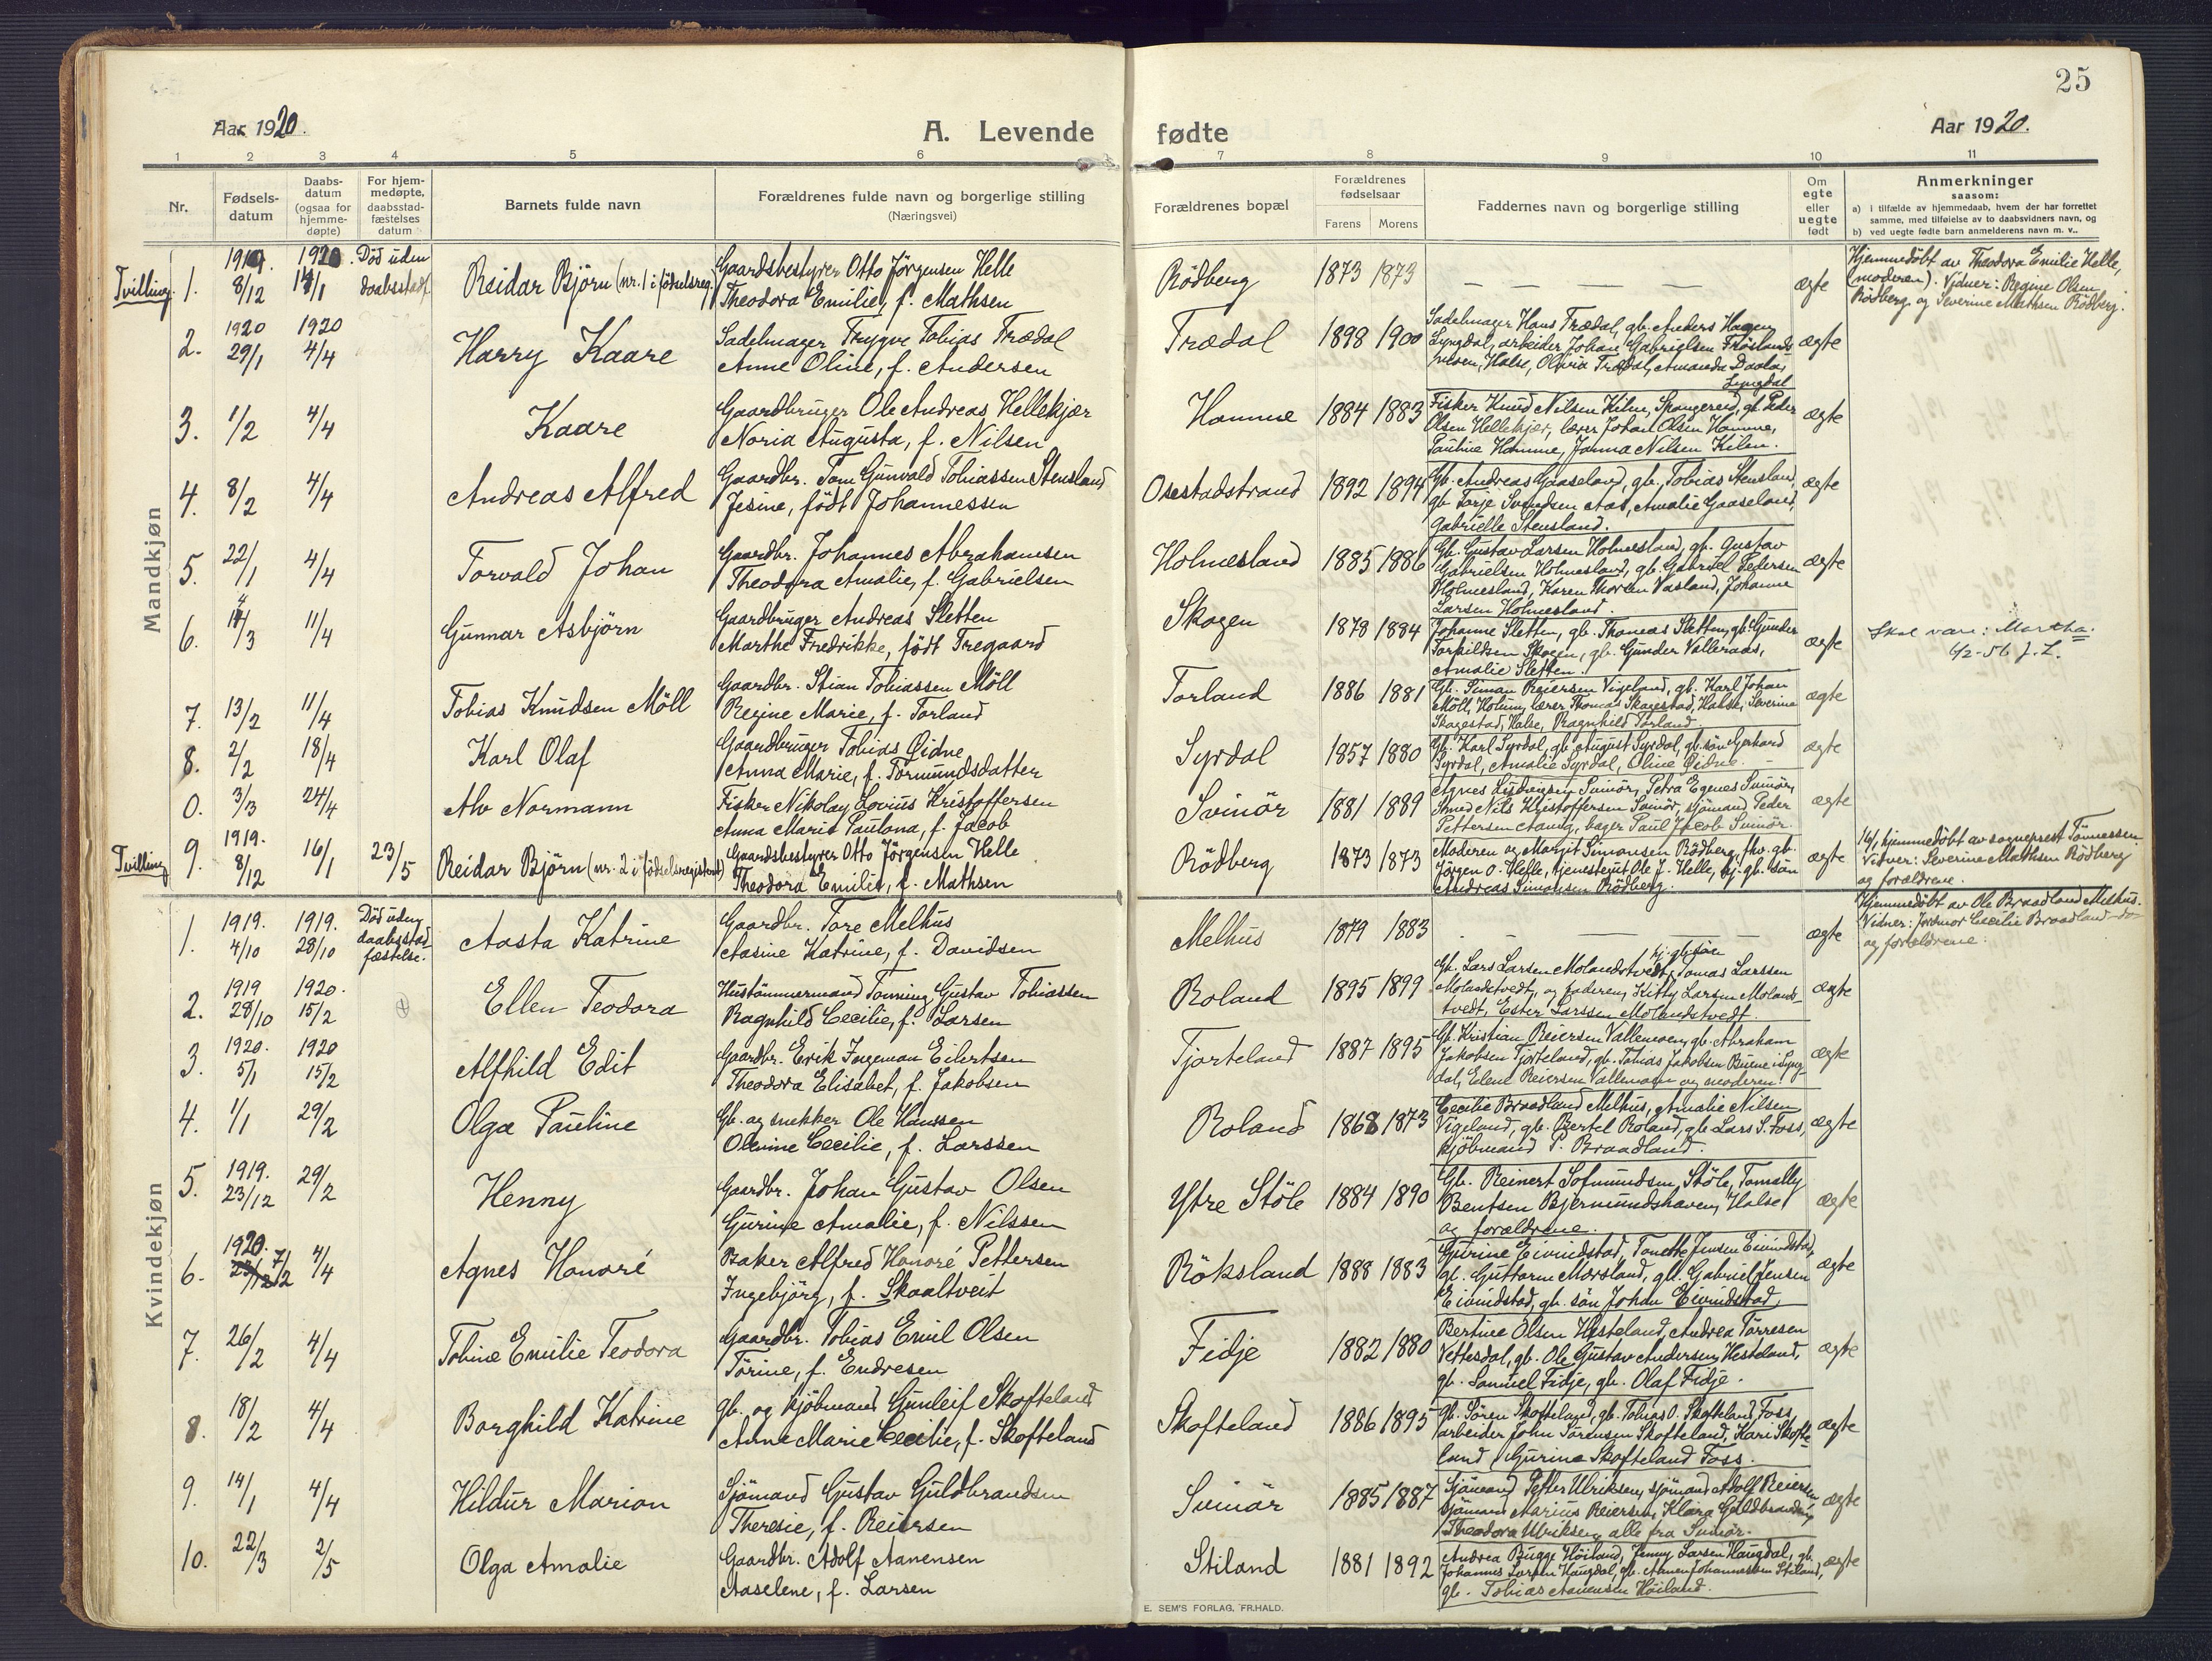 25
Aar 1920.
A. Levende fødte
Aar 1920.
1 2 3 4 5 6 7 8 9 10 11
Nr.
Fødsels-
datum
Daabs-
datum
(ogsaa for
hjemme-
døpte)
For hjem-
medøpte,
daabsstad-
fæstelses
datum
Barnets fulde navn
Forældrenes fulde navn og borgerlige stilling
(Næringsvei)
Forældrenes bopæl
Forældrenes
fødselsaar
Farens Morens
Faddernes navn og borgerlige stilling
Om
egte
eller
uegte
født
Anmerkninger
saasom:
a) i tilfælde av hjemmedaab, hvem der har forrettet
samme, med tilføielse av to daabsvidners navn, og
b) ved uegte fødte barn anmelderens navn m. v..
Mandkjøn
Tvilling 1. 1919. 8/12 1920. 14/1 Død uden daabsstadf.
Reidar Björn (nr. 1 i fødselsreg.)
Gaardsbestyrer Otto Jörgensen Helle
Theodora Emilie, f. Mathsen
Rödberg 1873 1873 — — — — ægte
Hjemmedöbt av Theodora Emilie Helle,
(moderen). Vidner: Regine Olsen
Rödberg og Severine Mathsen Rödberg.
2. 1920 29/1 1920 4/4
Harry Kaare
Sadelmager Trygve Tobias Trædal
Anne Oline, f. Andersen
Trædal 1898 1900
Sadelmager Hans Trædal, gb. Anders Hagen
Lyngdal, arbeider Johan Gabrielsen
Halse, Olivia Trædal, Amanda
Lyngdal
ægte
3. 1/2 4/4
Kaare
Gaardbruger Ole Andreas Hellekjær
Noria Augusta, f. Nilsen
Homme 1884 1883
Fisker Knud Nilsen Kilen, Spangereid, gb. Peder
Olsen Hellekjær, lærer Johan Olsen Homme,
Pauline Homme, Janna Nilsen Kilen.
ægte
4. 8/2 4/4
Andreas Alfred
Gaardbr. Tom Gunvald Tobiassen Stensland
Jesine, født Johannessen
Osestadstrand 1892 1894
Gb. Andreas Gaaseland, gb. Tobias Stensland,
gb. Torje Svendsen Aas, Amalie Gaaseland,
Gabrielle Stensland.
ægte
5. 22/1 4/4
Torvald Johan
Gaardbr. Johannes Abrahamsen
Theodora Amalie, f. Gabrielsen
Holmesland 1885 1886
Gb. Gustav Larsen Holmesland, gb. Gustav
Gabrielsen Holmesland, gb. Gabriel Pedersen
Holmesland, Karen Thorsen Vasland, Johanne
Larsen Holmesland.
ægte
6. 4/3 11/4
Gunnar Asbjörn
Gaardbruger Andreas Sletten
Marthe Fredrikke, født Tregaard
Skogen 1878 1884
Johanne Sletten, gb. Thomas Sletten, gb. Gunder
Torkildsen Skogen, gb. Gunder Valleraas,
Amalie Sletten.
ægte
Skal være: Martha.
4/2-56 J.L.
7. 13/2 11/4
Tobias Knudsen Möll
Gaardbr. Stian Tobiassen Möll
Regine Marie, f. Torland
Torland 1886 1881
Gb. Simon Reiersen Vigeland, gb. Karl Johan
Möll, Holum, lærer Thomas Skagestad, Halse, Severine
Skagestad, Halse, Ragnhild Torland
ægte
8. 2/2 18/4
Karl Olaf
Gaardbruger Tobias Øidne
Anna Marie, f. Tormundsdatter
Syrdal 1857 1880
Gb. Karl Syrdal, gb. August Syrdal, gb. søn Gerhard
Syrdal, Amalie Syrdal, Oline Øidne.
ægte
0. 3/3 24/4
Alv Normann
Fisker Nikolay Lovius Kristoffersen
Anna Marie Paulona, f. Jacob
Svinör 1881 1889
Agnes Ludvigsen Svinör, Petra Egenes Svinör,
Smed Nils Kristoffersen Svinör, sjömand Peder
Pettersen Aavig, bager Paul Jacob Svinör
ægte
Tvilling 9. 1919. 8/12 16/1 23/5
Reidar Björn (nr. 2 i fødselsregisteret)
Gaardsbestyrer Otto Jörgensen Helle
Theodora Emilie, f. Mathsen
Rödberg 1873 1873
Moderen og Margit Simonsen Rödberg, fhv. gb.
Jörgen O. Helle, tjenestegut Ole J. Helle, hj. gb. søn
Andreas Simonsen Rödberg.
ægte
16/1 hjemmedöbt av sogneprest Tönnessen
Vidner: Severine Mathsen Rödberg
og forældrene.
Kvindekjøn
1. 1919. 4/10 1919. 28/10 Død uden daabsstad fæstelse.
Aasta Katrine
Gaardbr. Tore Melhus
Aasine Katrine, f. Davidsen
Melhus 1879 1883 — — — — ægte
Hjemmedöbt av Ole Braadland Melhus.
Vidner: Jordmor Cecilie Braadland
og forældrene.
2. 1919 28/10 1920. 15/2
Ellen Teodora
Hustömmermand Tonning Gustav Tobiassen
Ragnhild Cecilie, f. Larsen
Roland 1895 1899
hj. gb. søn
Gb. Lars Larsen Molandstvedt, Tomas Larssen
Molandstvedt, og faderen, Kitty Larsen Molands-
tvedt, Ester Larssen Molandstvedt.
ægte
3. 1920. 5/1 1920 15/2
Alfhild Edit
Gaardbr. Erik Ingeman Eilertsen
Theodora Elisabet, f. Jakobsen
Tjorteland 1887 1895
Gb. Kristian Reiersen Vallemoen, gb. Abraham
Jakobsen Tjorteland, gb. Tobias Jakobsen Buene i Lyng-
dal, Elene Reiersen Vallemoen og moderen.
ægte
4. 1/1 29/2
Olga Pauline
Gb. og snekker Ole Hanssen
Olevine Cecilie, f. Larssen
Roland 1868 1873
Cecilie Braadland Melhus, Amalie Nilsen
Vigeland, gb. Bertel Roland, gb. Lars S. Foss,
kjöbmand P. Braadland.
ægte
5. 1919. 23/12 29/2
Henny
Gaardbr. Johan Gustav Olsen
Gurine Amalie, f. Nilssen
Ytre Stöle 1884 1890
Gb. Reinert Sofmundsen, Stöle, Tomally
Bentsen Bjermundshaven, Halse
og forældrene.
ægte
6. 1920. 23/12 7/2 4/4
Agnes Honoré
Baker Alfred Honoré Pettersen
Ingebjörg, f. Skaaltveit
Röksland 1888 1883
Gurine Eivindstad, Tonette Jensen Eivindstad,
gb. Guttorm Morsland, gb. Gabriel Jensen
Eivindstad, gb. søn Johan Eivindstad,
ægte
7. 26/2 4/4
Tobine Emilie Teodora
Gaardbr. Tobias Emil Olsen
Törine, f. Endresen
Fidje 1882 1880
Bertine Olsen Hesteland, Andrea Törresen
Vettesdal, gb. Ole Gustav Andersen, Hesteland,
gb. Samuel Fidje, gb. Olaf Fidje.
ægte
8. 18/2 4/4
Borghild Katrine
gb. og kjöbmand Gunleif Skofteland
Anne Marie Cecilie, f. Skofteland
Skofteland 1886 1895
gb. Sören Skofteland, gb. Tobias O. Skofteland, Foss,
arbeider John Sörensen Skofteland, Kari Skofte-
land, Gurine Skofteland Foss.
ægte
9. 14/1 4/4
Hildur Marion
Sjömand Gustav Guldbrandsen
Theresie, f. Reiersen
Svinör 1885 1887
Sjömand Petter Ulriksen, sjömand Adolf Reiersen
sjömand Marius Reiersen, Klara Guldbrandsen,
Theodora Ulriksen, alle fra Svinör.
ægte
10. 22/3 2/5
Olga Amalie
Gaardbr. Adolf Aanensen
Aaselene, f. Larsen
Stiland 1881 1892
Andrea Bugge Höiland, Jenny Larsen Haugdal, gb.
Johannes Larsen Haugdal, gb. Aanen Johannessen Stiland,
gb. Tobias Aanensen Höiland.
ægte
E. SEM'S FORLAG, FR.HALD.